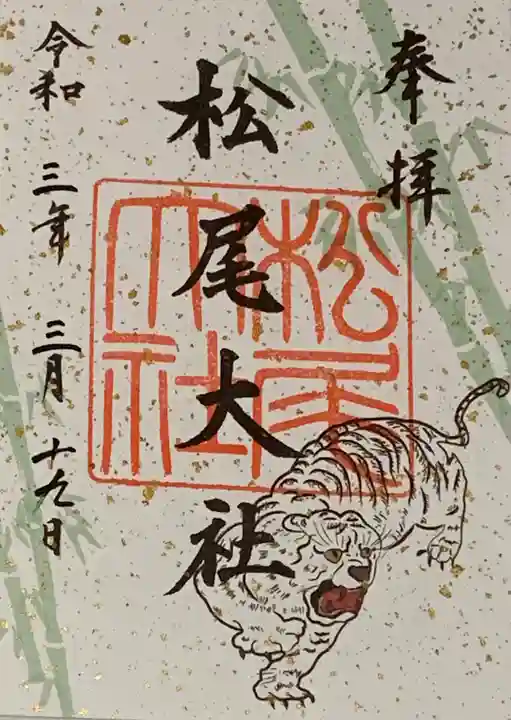 奉拝
松尾大社
松尾大社
令和 三年 三月 十九日